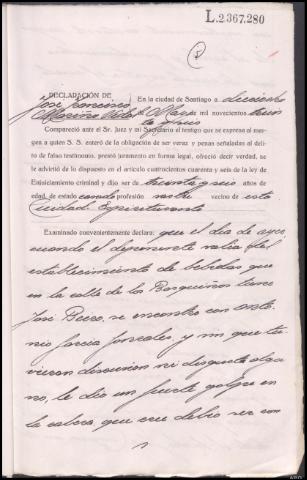 L.2.367.280
DECLARACIÓN DE
José Francisco En la ciudad de Santiago a dieciocho
Mariño de Mayo mil novecientos trein
ta y seis
Compareció ante el Sr. Juez y mi Secretario el testigo que se expresa al mar-
gen a quien S. S. enteró de la obligación de ser veraz y penas señaladas al deli-
to de falso testimonio, prestó juramento en forma legal, ofreció decir verdad, se
le advirtió de lo dispuesto en el artículo cuatrocientos cuarenta y seis de la ley de
Enjuiciamiento criminal y dijo ser de treinta y seis años de
edad, de estado casado profesión vecino de esta
Ciudad.
Examinado convenientemente declara: que el día de ayer
cuando el deponente salía del
establecimiento de bebidas que
en la calle de los Basquiños tiene
José Rucso, se encontró con Anto-
nio García González, y sin que tu-
vieran discusión ni disgusto algu-
no, le dio un fuerte golpe en
la cabeza que cree debió ser con